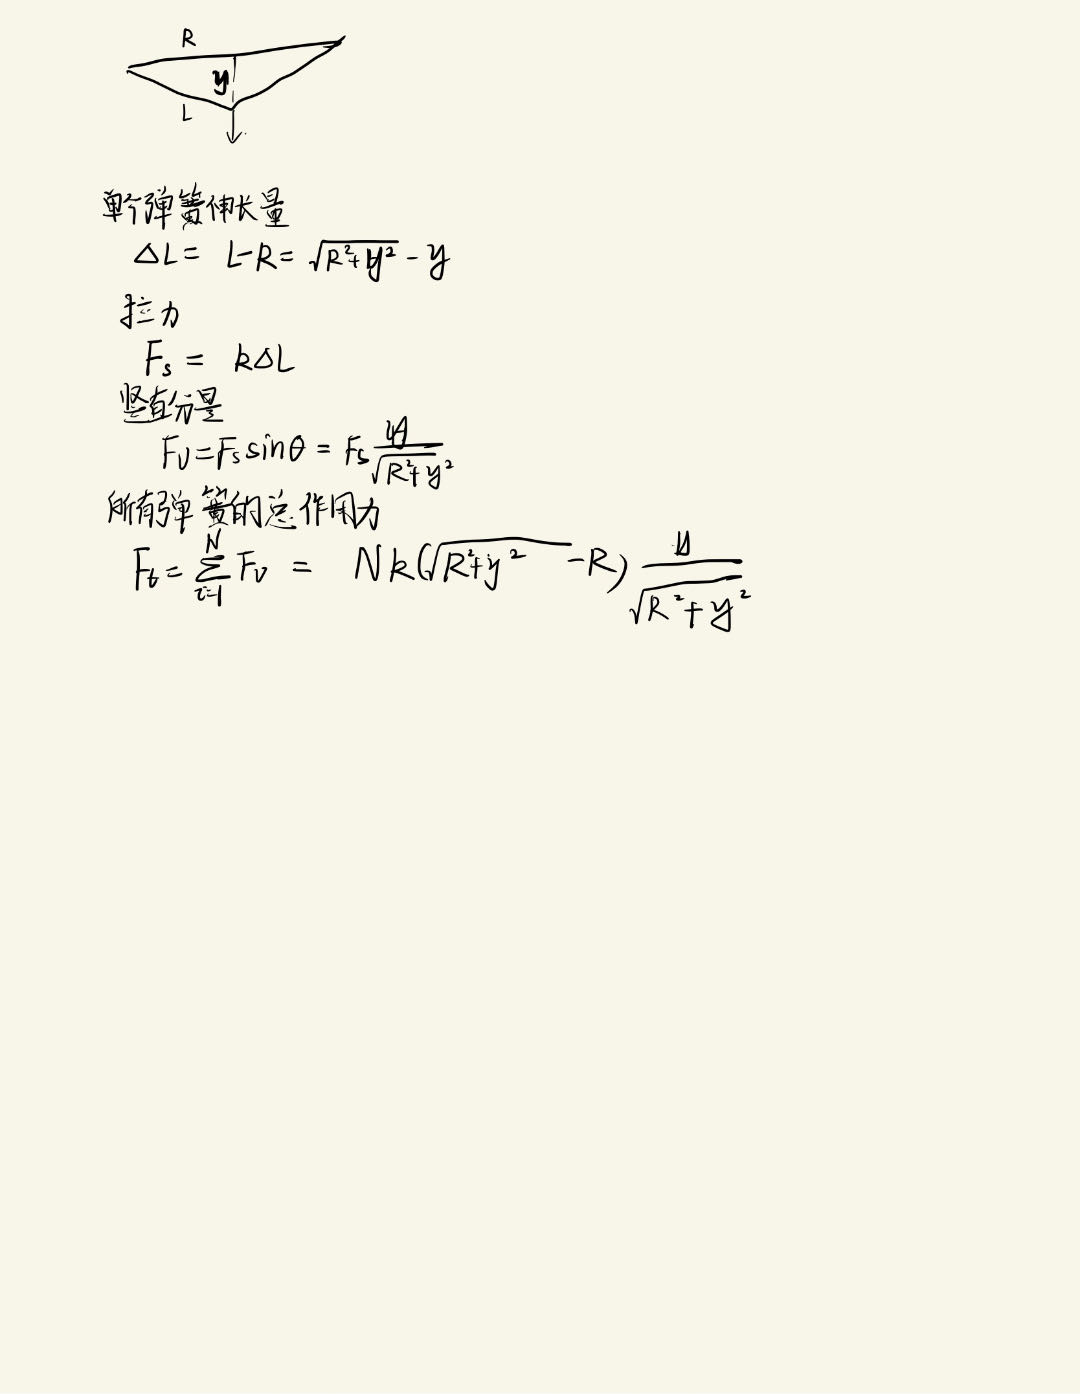 R
y
L
单个弹簧伸长量
△L = L-R = √(R²+y²) - y
拉力
Fs = k△L
竖直分量
Fv = Fs sinθ = Fs y/√(R²+y²)
所有弹簧的总作用力
Ft = ∑_{i=1}^{N} Fv = Nk(√(R²+y²) - R) y/√(R²+y²)